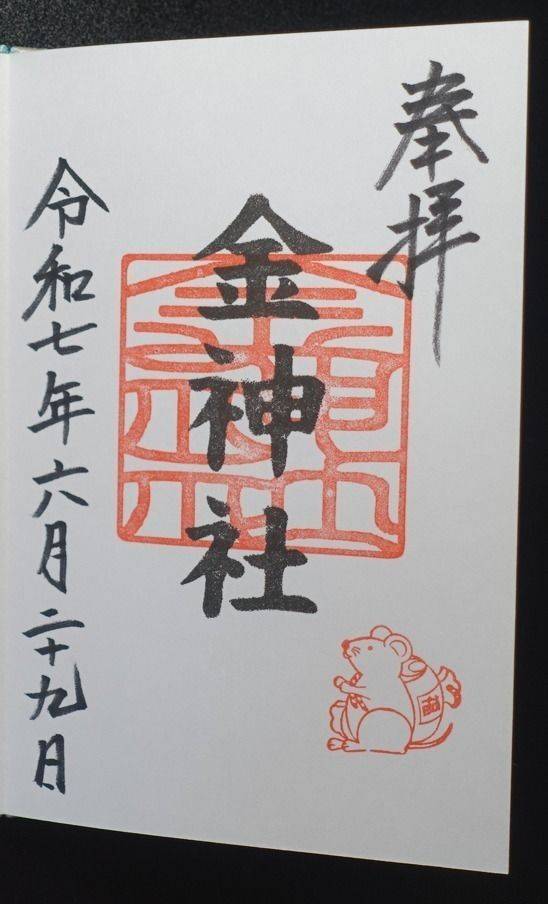 奉拝
金神社
金神社
令和七年六月二十九日